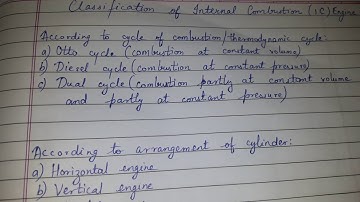 Classification of Internal Combustion (IC) Engine
According to cycle of combustion/thermodynamic cycle:
a) Otto cycle (combustion at constant volume)
b) Diesel cycle (combustion at constant pressure)
c) Dual cycle (combustion partly at constant volume
and partly at constant pressure)
According to arrangement of cylinder:
a) Horizontal engine
b) Vertical engine